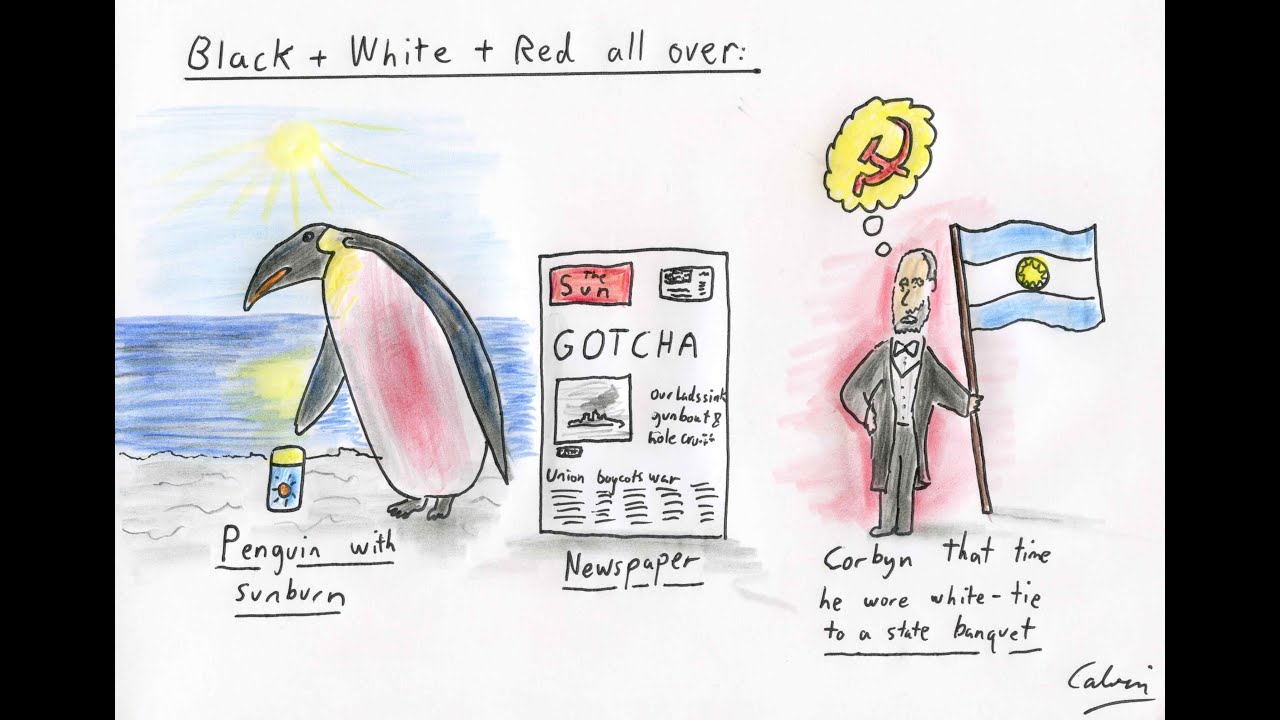 Black + White + Red all over:
The
Sun
GOTCHA
Our lads sink
gunboat &
hole cruis
Union boycots war
Penguin with
sunburn
Newspaper
Corbyn that time
he wore white-tie
to a state banquet
Calvin